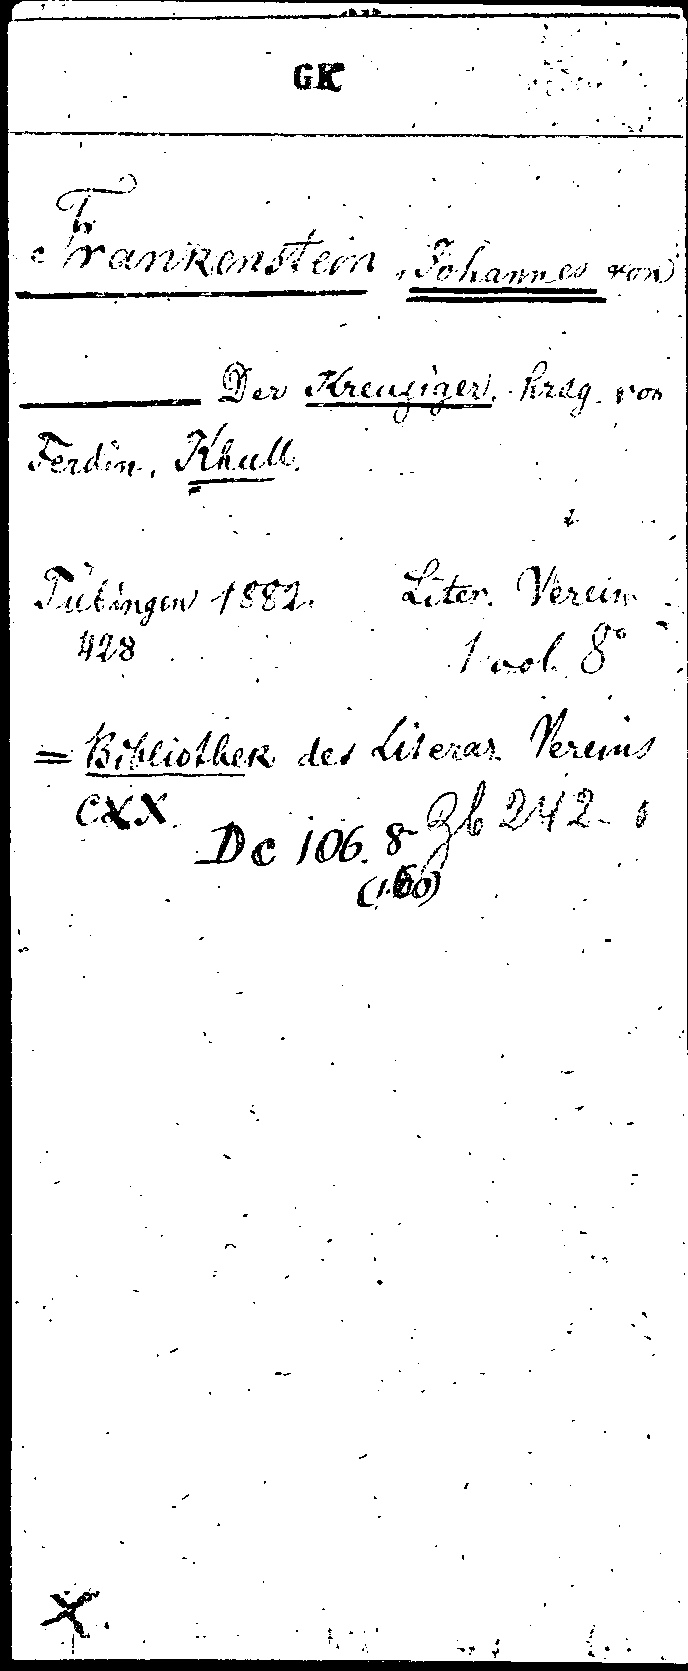 GK
Frankenstein, Johannes von
Der Kreuziger. hrsg. von
Ferdin. Khull.
Tübingen 1882. Liter. Verein
428 1 vol. 8°
= Bibliothek des Literar. Vereins
CXX.
Dc 106. 8 Zb 242
(160)
X